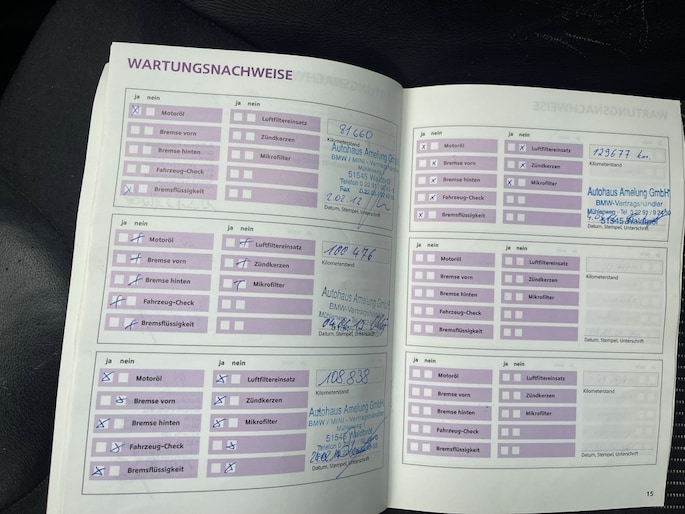 WARTUNGSNACHWEISE
ja nein
Motoröl
Bremse vorn
Bremse hinten
Fahrzeug-Check
Bremsflüssigkeit
ja nein
Luftfiltereinsatz
Zündkerzen
Mikrofilter
91660
Kilometerstand
Autohaus Amelung GmbH
BMW / MINI - Vertragshändler
51545 Waldbröl
Telefon
Fax
2.02.12
Datum, Stempel, Unterschrift
ja nein
Motoröl
Bremse vorn
Bremse hinten
Fahrzeug-Check
Bremsflüssigkeit
ja nein
Luftfiltereinsatz
Zündkerzen
Mikrofilter
100 476
Kilometerstand
Autohaus Amelung GmbH
BMW-Vertragshändler
Datum, Stempel, Unterschrift
ja nein
Motoröl
Bremse vorn
Bremse hinten
Fahrzeug-Check
Bremsflüssigkeit
ja nein
Luftfiltereinsatz
Zündkerzen
Mikrofilter
108 838
Kilometerstand
Autohaus Amelung GmbH
BMW / MINI - Vertragshändler
51545 Waldbröl
Telefon
Datum, Stempel, Unterschrift
ja nein
Motoröl
Bremse vorn
Bremse hinten
Fahrzeug-Check
Bremsflüssigkeit
ja nein
Luftfiltereinsatz
Zündkerzen
Mikrofilter
129677 km
Kilometerstand
Autohaus Amelung GmbH
BMW-Vertragshändler
51545 Waldbröl
Datum, Stempel, Unterschrift
ja nein
Motoröl
Bremse vorn
Bremse hinten
Fahrzeug-Check
Bremsflüssigkeit
ja nein
Luftfiltereinsatz
Zündkerzen
Mikrofilter
Kilometerstand
Datum, Stempel, Unterschrift
ja nein
Motoröl
Bremse vorn
Bremse hinten
Fahrzeug-Check
Bremsflüssigkeit
ja nein
Luftfiltereinsatz
Zündkerzen
Mikrofilter
Kilometerstand
Datum, Stempel, Unterschrift
15